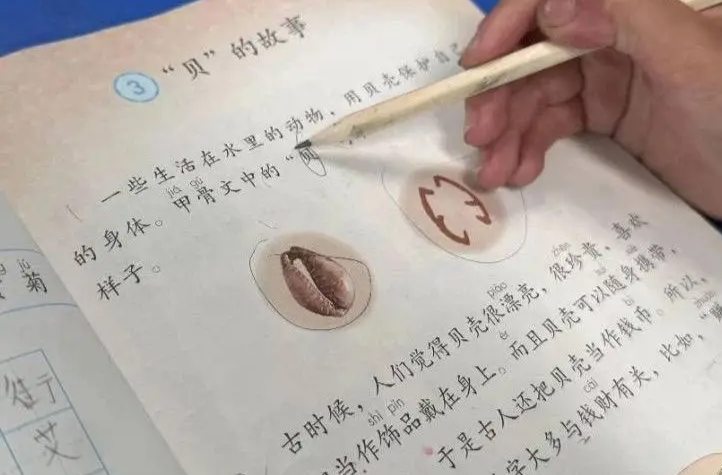 3 “贝”的故事
一些生活在水里的动物，用贝壳保护自己
jiǎ gǔ
的身体。甲骨文中的“贝
样子。
piào zhēn
古时候，人们觉得贝壳很漂亮，很珍贵，喜欢
shì pǐn
当作饰品戴在身上。而且贝壳可以随身携带，
bì
于是古人还把贝壳当作钱币。所以，
cái
字大多与钱财有关，比如，
菊
艾